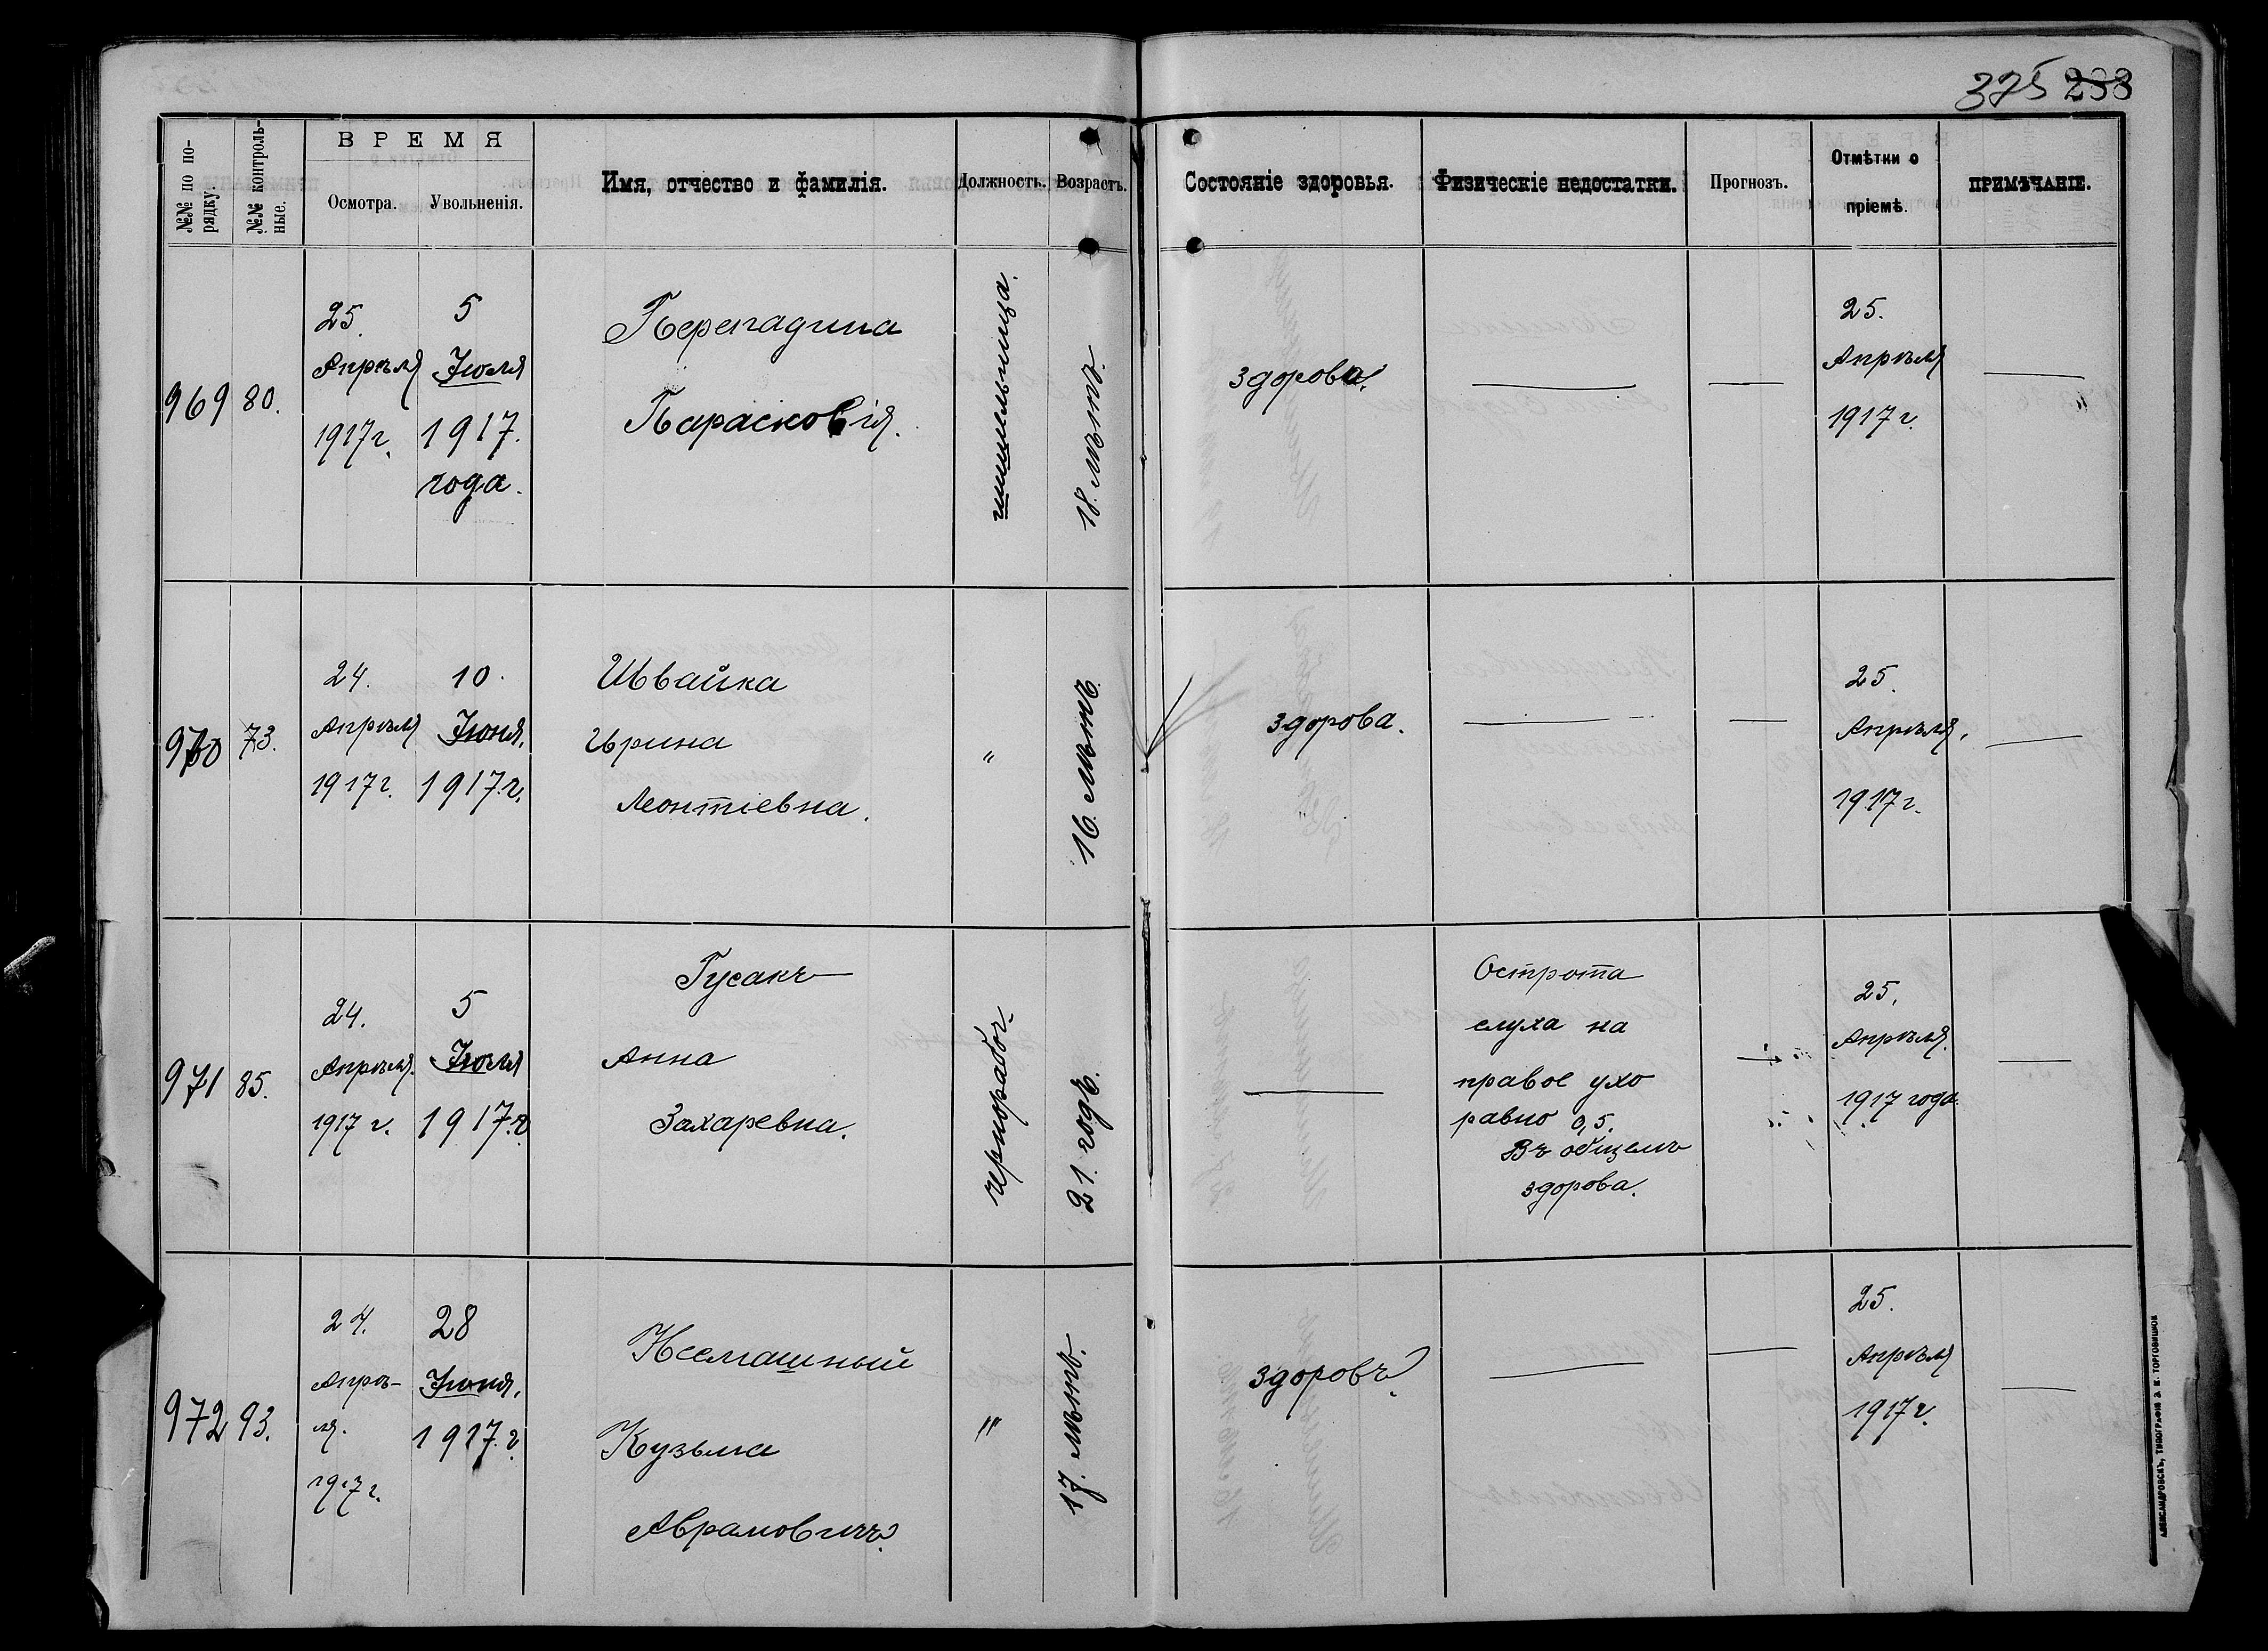 375 233
№№ по по-
рядку.
№№ контроль-
ные.
ВРЕМЯ
Осмотра.
Увольненія.
Имя, отчество и фамилія.
Должность.
Возрастъ.
Состояніе здоровья.
Физическіе недостатки.
Прогнозъ.
Отмѣтки о
пріемѣ.
ПРИМѢЧАНІЕ.
969
80.
25.
Апрѣля
1917 г.
5
Іюля
1917.
года.
Парасковія.
18. лѣтъ.
здорова.
25.
Апрѣля
1917 г.
970
73.
24.
Апрѣля
1917 г.
10.
Іюня.
1917. г.
Швайка
Ирина
Леонтіевна.
"
16. лѣтъ.
здорова.
25.
Апрѣля.
1917 г.
971
85.
24.
Апрѣля.
1917 г.
5
Іюля
1917. г
Гусакъ
Анна
Захаревна.
чернорабоч.
21. годъ.
Острота
слуха на
правое ухо
равно 0,5.
Въ общемъ
здорова.
25.
Апрѣля.
1917 года.
972
93.
24.
Апрѣ-
ля.
1917 г.
28
Іюня.
1917. г.
Кузьма
Аврамовичъ.
"
17. лѣтъ.
здоровъ.
25.
Апрѣля
1917 г.
АЛЕКСАНДРОВСКЪ, ТИПОГРАФІЯ Э. И. ТОРГОВИЦКОВ